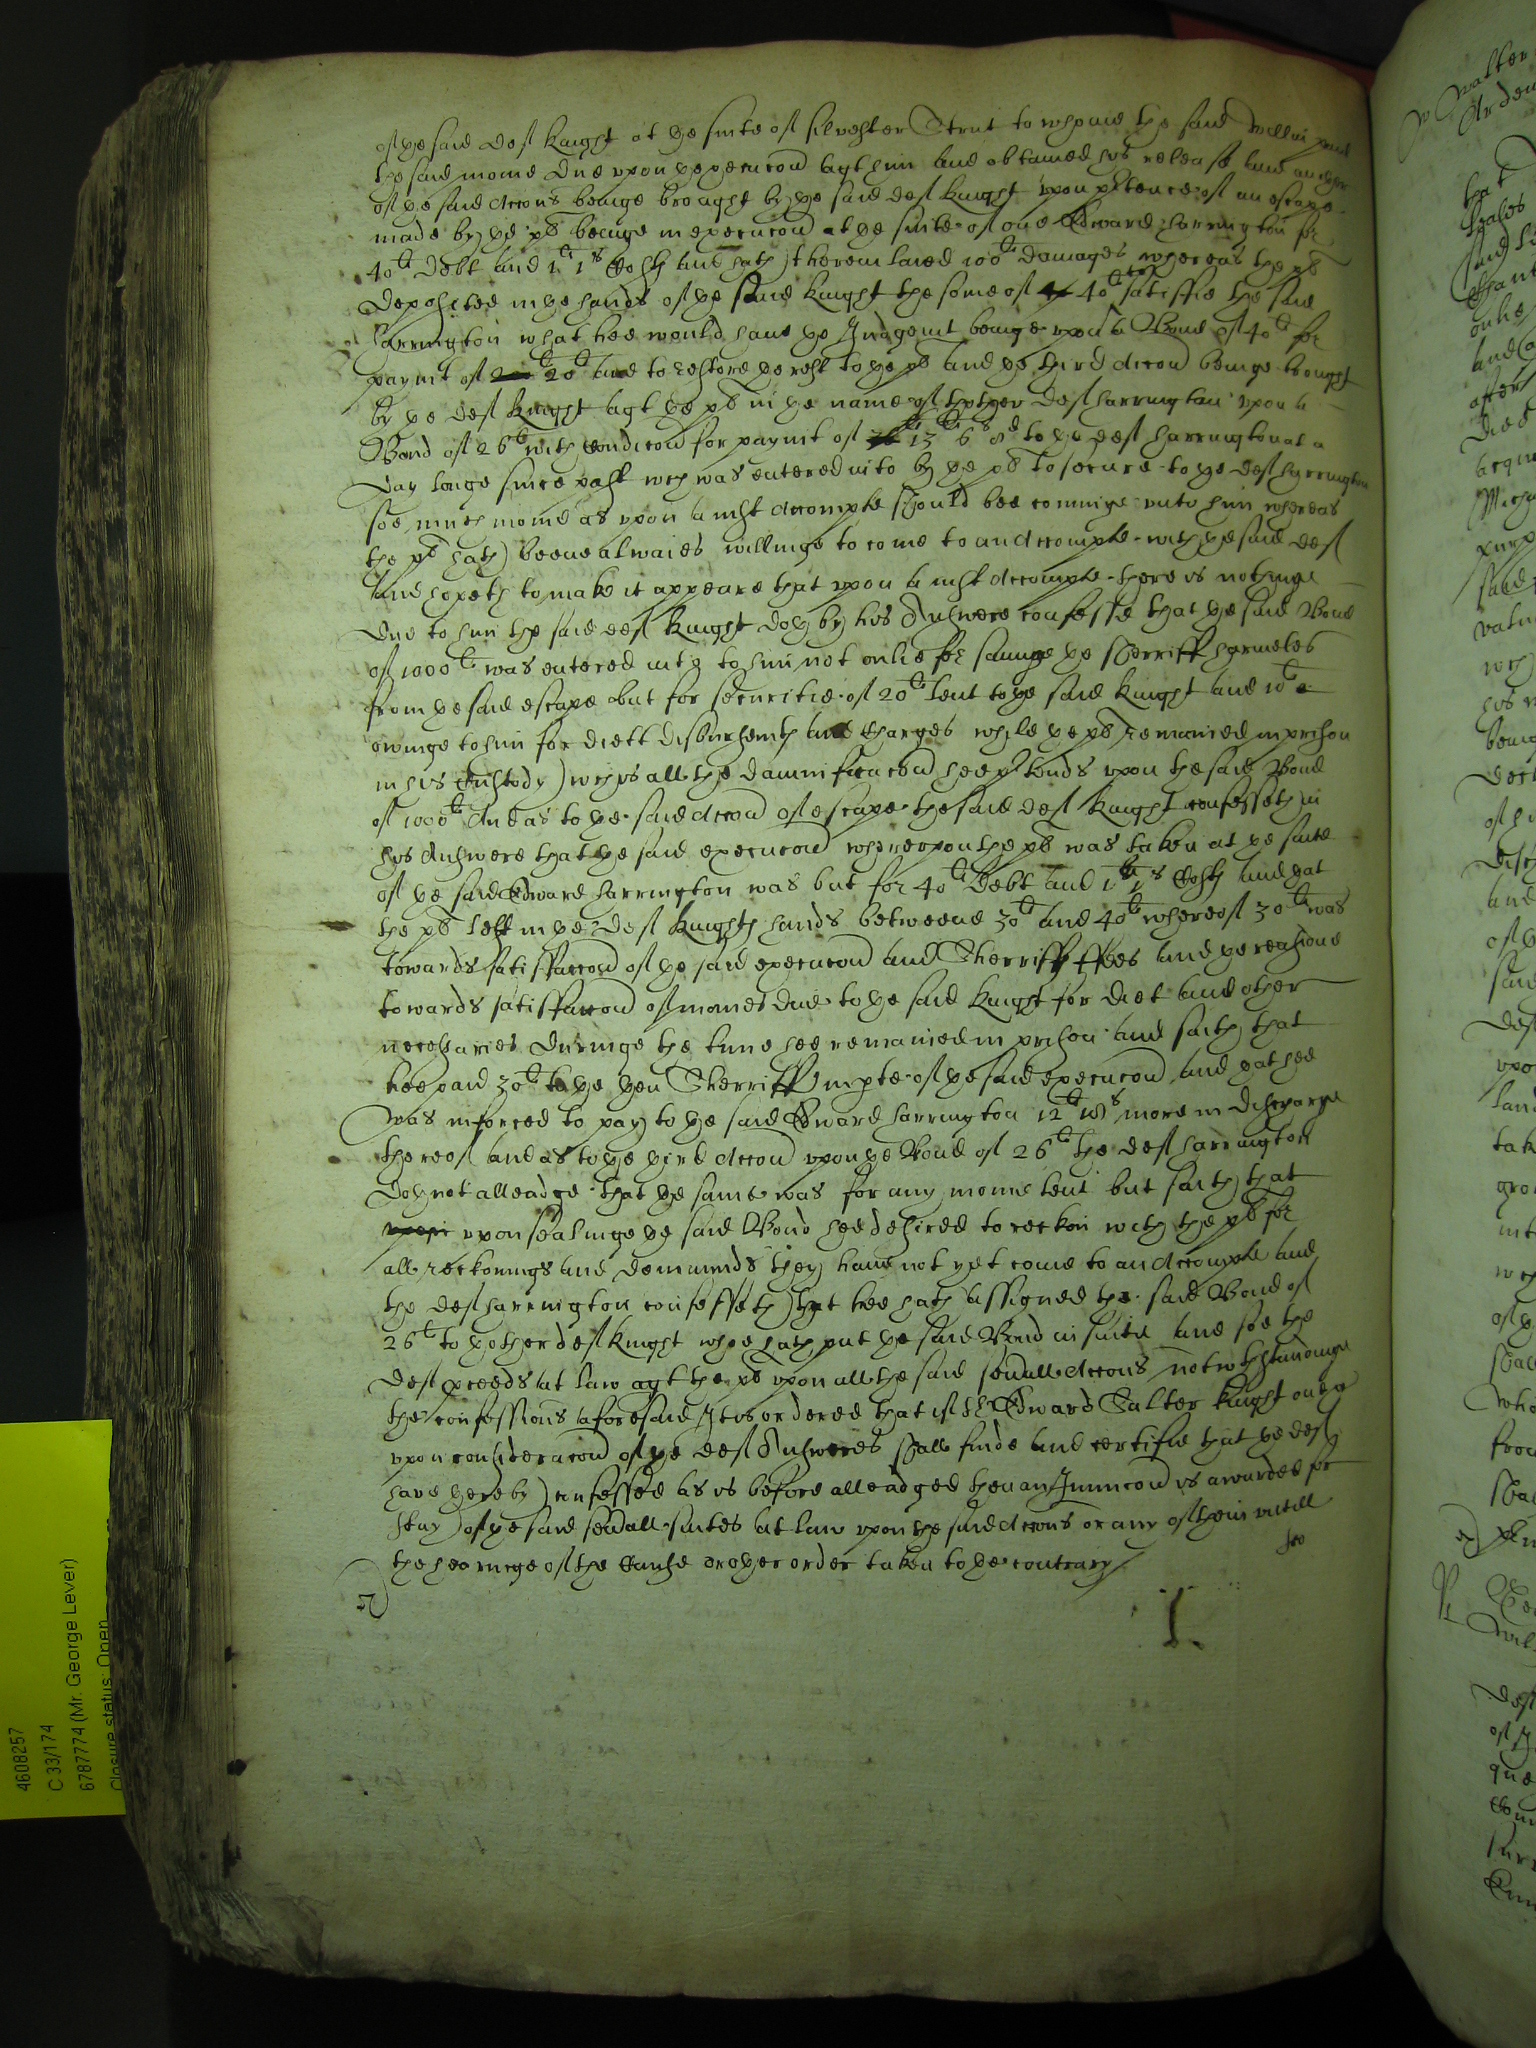 of ye said deft Knight at ye suite of Silvester Strut to whome the said Willm paid
the said monie due upon ye execucon agt him and obtained his release and another
of ye said Accons beinge brought by ye said deft Knight upon ptence of an escape
made by ye pl beinge in execucon at ye suite of one Edward Harrington for
40li debt and 1li 1s Costs and hath therein laied 100li damages whereas the pl
deposited in ye hands of ye said Knight the some of 40li to satisfie the said
Harrington what hee would have ye Judgemt beinge upon a Bond of 40li for
paymt of 20li and to restore ye rest to ye pl and ye third Accon beinge brought
by ye deft Knight agt ye pl in ye name of thother deft Harrington upon a
Bond of 26li with Condicon for paymt of 13li 6s 8d to ye deft Harrington at a
day longe since past wch was entered into by ye pl to secure to ye deft Harrington
soe much monie as upon a iust Accompte should bee cominge unto him whereas
the pl hath beene alwaies willinge to come to an Accompte with ye said deft
and hopeth to make it appeare that upon a iust Accompte there is nothinge
due to him the said deft Knight doth by his Answere confesse that ye said Bond
of 1000li was entered into to him not onlie for savinge ye Sherriff harmeles
from ye said escape but for securitie of 20li lent to ye said Knight and 10li
owinge to him for diett disbursemts and Charges while ye pl remained in prison
in his Custody wch is all the damnificacon hee ptends upon the said Bond
of 1000li And as to ye said Accon of escape the said deft Knight confesseth in
his Answere that ye said execucon whereupon the pl was taken at ye suite
of ye said Edward Harrington was but for 40li debt and 1li 1s Costs and yat
the pl left in ye deft Knights hands betweene 30li and 40li whereof 30li was
towards satisfaccon of ye said execucon and Sherriffs ffees and ye residue
towards satisfaccon of monies due to ye said Knight for diet and other
necessaries duringe the time hee remained in prison and saith that
hee paid 30li to ye then Sherriffe in pte of ye said execucon and yat hee
was inforced to pay to ye said Edward Harrington 12li 18s more in discharge
thereof and as to ye third Accon upon ye Bond of 26li the deft Harrington
doth not alleadge that ye same was for any monie lent but saith that
upon upon sealinge ye said Bond hee desired to reckon with the pl for
all reckonings and demaunds they have not yet come to an Accompte and
the deft Harrington confesseth that hee hath assigned the said Bond of
26li to ye other deft Knight whoe hath put ye said Bond in suite and soe the
deft proceeds at law agt the pl upon all the said sevall Accons notwthstandinge
the confessions aforesaid It is ordered that if Sr Edward Salter Knight one &c
upon consideracon of ye deft Answeres shall finde and certifie that ye deft
have thereby confessed as is before alleadged then an Iniunccon is awarded for
stay of ye said sevall suites at law upon the said Accons or any of them untill
the hearinge of the Cause or other order taken to ye contrary
4608257
C 33/174
6787774 (Mr. George Lever)
Closure status: Open